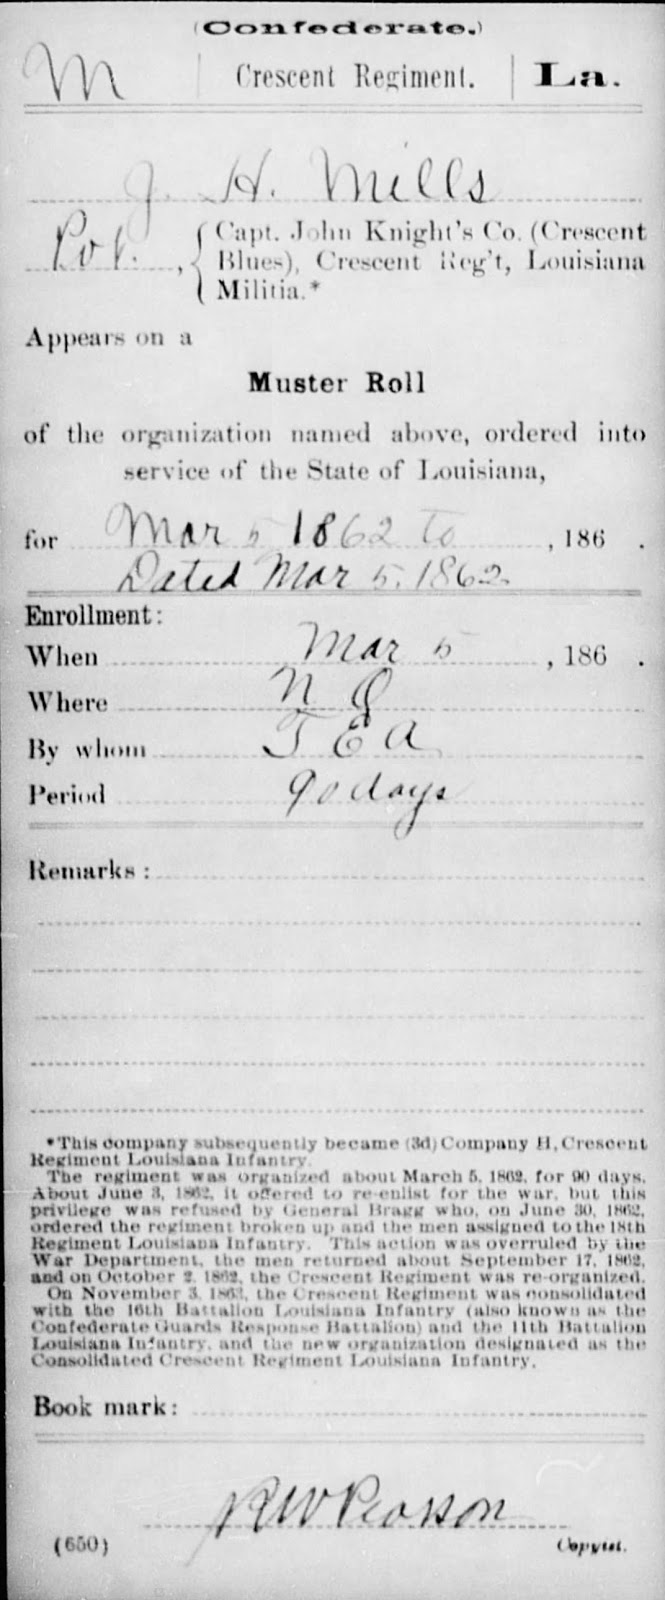 (Confederate.)
M | Crescent Regiment. | La.
J. H. Mills
Pvt., { Capt. John Knight's Co. (Crescent
Blues), Crescent Reg't, Louisiana
Militia.*
Appears on a
Muster Roll
of the organization named above, ordered into
service of the State of Louisiana,
for Mar 5 1862 to , 186 .
Dated Mar 5, 1862.
Enrollment:
When Mar 5 , 186 .
Where N O
By whom T E A
Period 90 days
Remarks:
*This company subsequently became (3d) Company H, Crescent
Regiment Louisiana Infantry.
The regiment was organized about March 5, 1862, for 90 days.
About June 3, 1862, it offered to re-enlist for the war, but this
privilege was refused by General Bragg who, on June 30, 1862,
ordered the regiment broken up and the men assigned to the 18th
Regiment Louisiana Infantry. This action was overruled by the
War Department, the men returned about September 17, 1862,
and on October 2, 1862, the Crescent Regiment was re-organized.
On November 3, 1863, the Crescent Regiment was consolidated
with the 16th Battalion Louisiana Infantry (also known as the
Confederate Guards Response Battalion) and the 11th Battalion
Louisiana Infantry, and the new organization designated as the
Consolidated Crescent Regiment Louisiana Infantry.
Book mark:
R W Pearson
(650) Copyist.